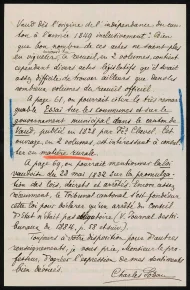 Vaud dès l'origine de l'indépendance du can-
ton à l'année 1849 inclusivement. Bien
que bon nombre de ces actes ne soient plus
en vigueur, le recueil, en 2 volumes, contient
cependant divers actes législatifs qu'il serait
assez difficile de trouver ailleurs que dans les
nombreux volumes du recueil officiel.
A page 61, on pourrait citer le très remar-
quable Essai sur les communes et sur le
gouvernement municipal dans le canton de
Vaud, publié en 1828 par Ph. Clavel. Cet
ouvrage, en 2 volumes, est intéressant à consul-
ter en matière rurale.
A page 69, on pourrait mentionner la loi
vaudoise du 22 mai 1832 sur la promulga-
tion des lois, décrets et arrêtés.
cette loi pour
d'Etat n'était pas obligatoire (V. Journal des tri-
bunaux de 1884, p. 58 et suiv).
Toujours à votre disposition pour d'autres
renseignements, je vous prie, monsieur le pro-
fesseur, d'agréer l'expression de mes sentiments
bien dévoués.
Charles